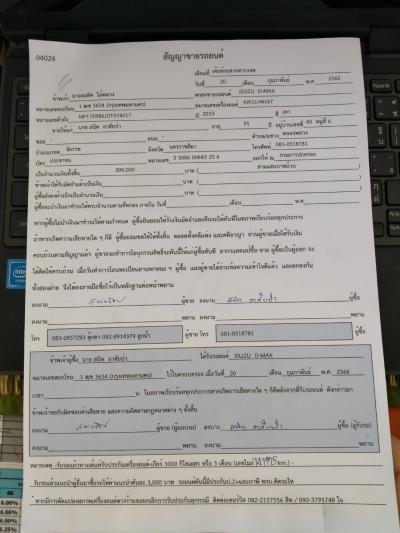 04026
สัญญาขายรถยนต์
เขียนที่ เต้นท์รถสวยสารเวลล
วันที่ 20 เดือน กุมภาพันธ์ พ.ศ 2566
ข้าพเจ้า นางสมคิด ไม้พลวง ตกลงขายรถยนต์ ISUZU D-MAX
หมายเลขทะเบียน 1 ฒฬ 3634 (กรุงเทพมหานคร) หมายเลขเครื่องยนต์ 4JK1LH4167
หมายเลขตัวถัง ปี 2013 สี เทา
ขายให้แก่ นาย สนิท อาศัยป่า อายุ 55 ปี อยู่บ้านเลขที่ 45 หมู่ที่ 6
ซอย - ถนน - ตำบล/แขวง หนองพลวง
อำเภอ/เขต จักราช จังหวัด นครราชสีมา โทรศัพท์ 081-0518781
บัตร ประชาชน หมายเลข 3 3006 00643 20 6 ออกให้ ณ กรมการปกครอง
เป็นจำนวนเงินทั้งสิ้น 300,000 บาท ( สามแสนบาทถ้วน )
ข้าพเจ้าได้รับมัดจำแล้วเป็นเงิน บาท ( )
ผู้ซื้อยังคงค้างอีกเป็นจำนวนเงิน บาท ( )
ผู้ซื้อจะนำเงินมาชำระให้ครบจำนวนตามที่ตกลง ภายใน วันที่ เดือน พ.ศ
หากผู้ซื้อไม่นำเงินมาชำระตามกำหนด ผู้ซื้อยินยอมให้ริบเงินมัดจำและคืนรถให้ทันทีในสภาพเรียบร้อยทุกประการ
ถ้าหากเกิดความเสียหายใด ๆ ก็ดี ผู้ซื้อยอมชดใช้ให้ทั้งสิ้น ตลอดทั้งคดีแพ่ง และคดีอาญา ส่วนผู้ขายเมื่อได้รับเงิน
ครบถ้วนตามสัญญาแล้ว ผู้ขายจะทำการโอนกรรมสิทธิ์รถคันนี้ให้แก่ผู้ซื้อทันที อากรแสตมป์ซื้อ-ขาย ผู้ซื้อเป็นผู้ออก จะ
ได้คิดให้ครบถ้วน เมื่อวันทำการโอนทะเบียนยานพาหนะ ฯ ผู้ซื้อ และผู้ขายได้อ่านข้อความเข้าใจดีแล้ว และตกลงกัน
ทั้งสองฝ่าย จึงได้ลงลายมือชื่อไว้เป็นหลักฐานต่อหน้าพยาน
ลงนาม ผู้ขาย ลงนาม ผู้ซื้อ
ลงนาม พยาน ลงนาม พยาน
โทร 083-2657293 ลูกตา 092-8914379 ลูกน้ำ ผู้ขาย โทร 081-0518781 ผู้ซื้อ
ข้าพเจ้าผู้ซื้อ นาย สนิท อาศัยป่า ได้รับรถยนต์ ISUZU D-MAX
หมายเลขทะเบียน 1 ฒฬ 3634 (กรุงเทพมหานคร) ไว้ในครอบครอง เมื่อวันที่ 20 เดือน กุมภาพันธ์ พ.ศ. 2566
เวลา น. ในสภาพเรียบร้อยทุกประการหากเกิดการเสียหายใด ๆ ก็ดีหลังจากที่รับรถยนต์ ดังกล่าวมา
ข้าพเจ้าขอรับผิดชอบค่าเสียหาย และความผิดตามกฎหมายต่าง ๆ ทั้งสิ้น
ลงนาม ผู้ขาย (ผู้มอบรถ) ลงนาม ผู้ซื้อ (ผู้รับรถ)
ลงนาม พยาน ลงนาม พยาน
หมายเหตุ -รับรถแล้วทางเต้นท์รับประกันเครื่องยนต์-เกียร์ 3000 กิโลเมตร หรือ 3 เดือน (เลขไมล์ km.) -
รับรถแล้วแนะนำผู้อื่นมาซื้อรถให้ค่าแนะนำคันละ 3,000 บาท รถยนต์คันนี้มีประกัน1,2+และภาษี พรบ.ติดรถไห
*หากมีการดัดแปลงสภาพเครื่องยนต์ทางร้านขอยกเลิกการรับประกันทุกกรณี ติดต่อเซอร์วิส 082-2157556 สิท / 093-3795748 โจ